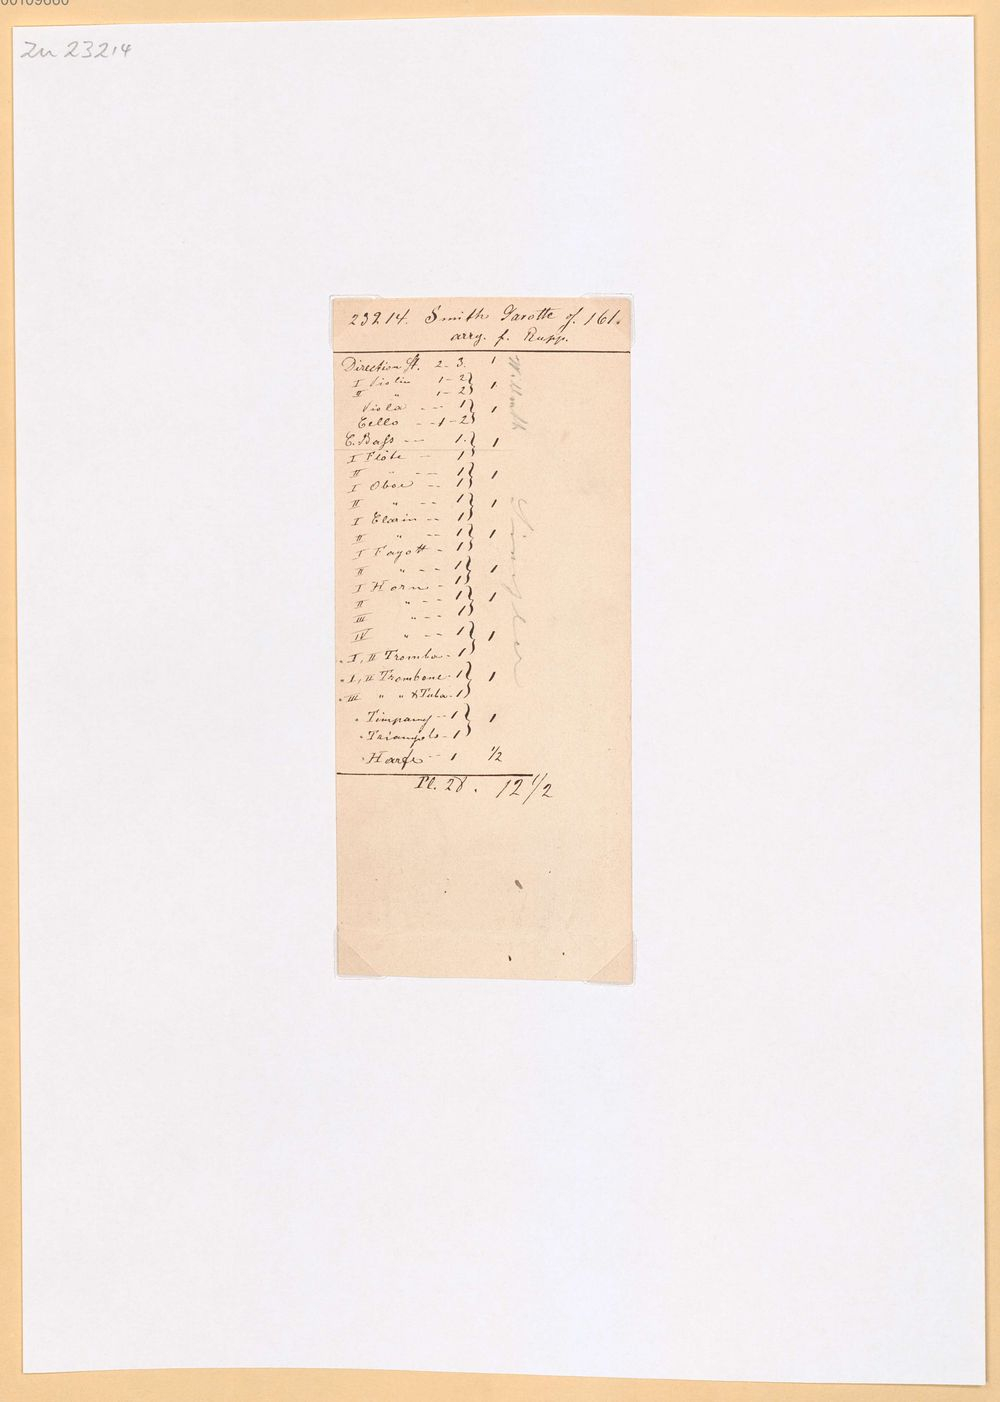 00109660
Zu 23214
23214. Smith Gavotte of. 161.
arrg. f. Rupp.
Direction St. 2-3. 1
I Violin 1-2
II " 1-2 } 1
Viola -- 1
Cello -- 1-2 } 1
C. Bass -- 1.
I Flöte - 1 } 1
II " -- 1
I Oboe -- 1 } 1
II " -- 1
I Clarin -- 1 } 1
II " -- 1
I Fagott - 1 } 1
II " -- 1
I Horn - 1 } 1
II " -- 1
III " -- 1 } 1
IV " -- 1
I, II Tromba - 1 } 1
I, II Trombone - 1
III " " & Tuba - 1 } 1
Timpany -- 1
Triangolo - 1 } 1
Harfe -- 1 1/2
Pl. 28. 12 1/2